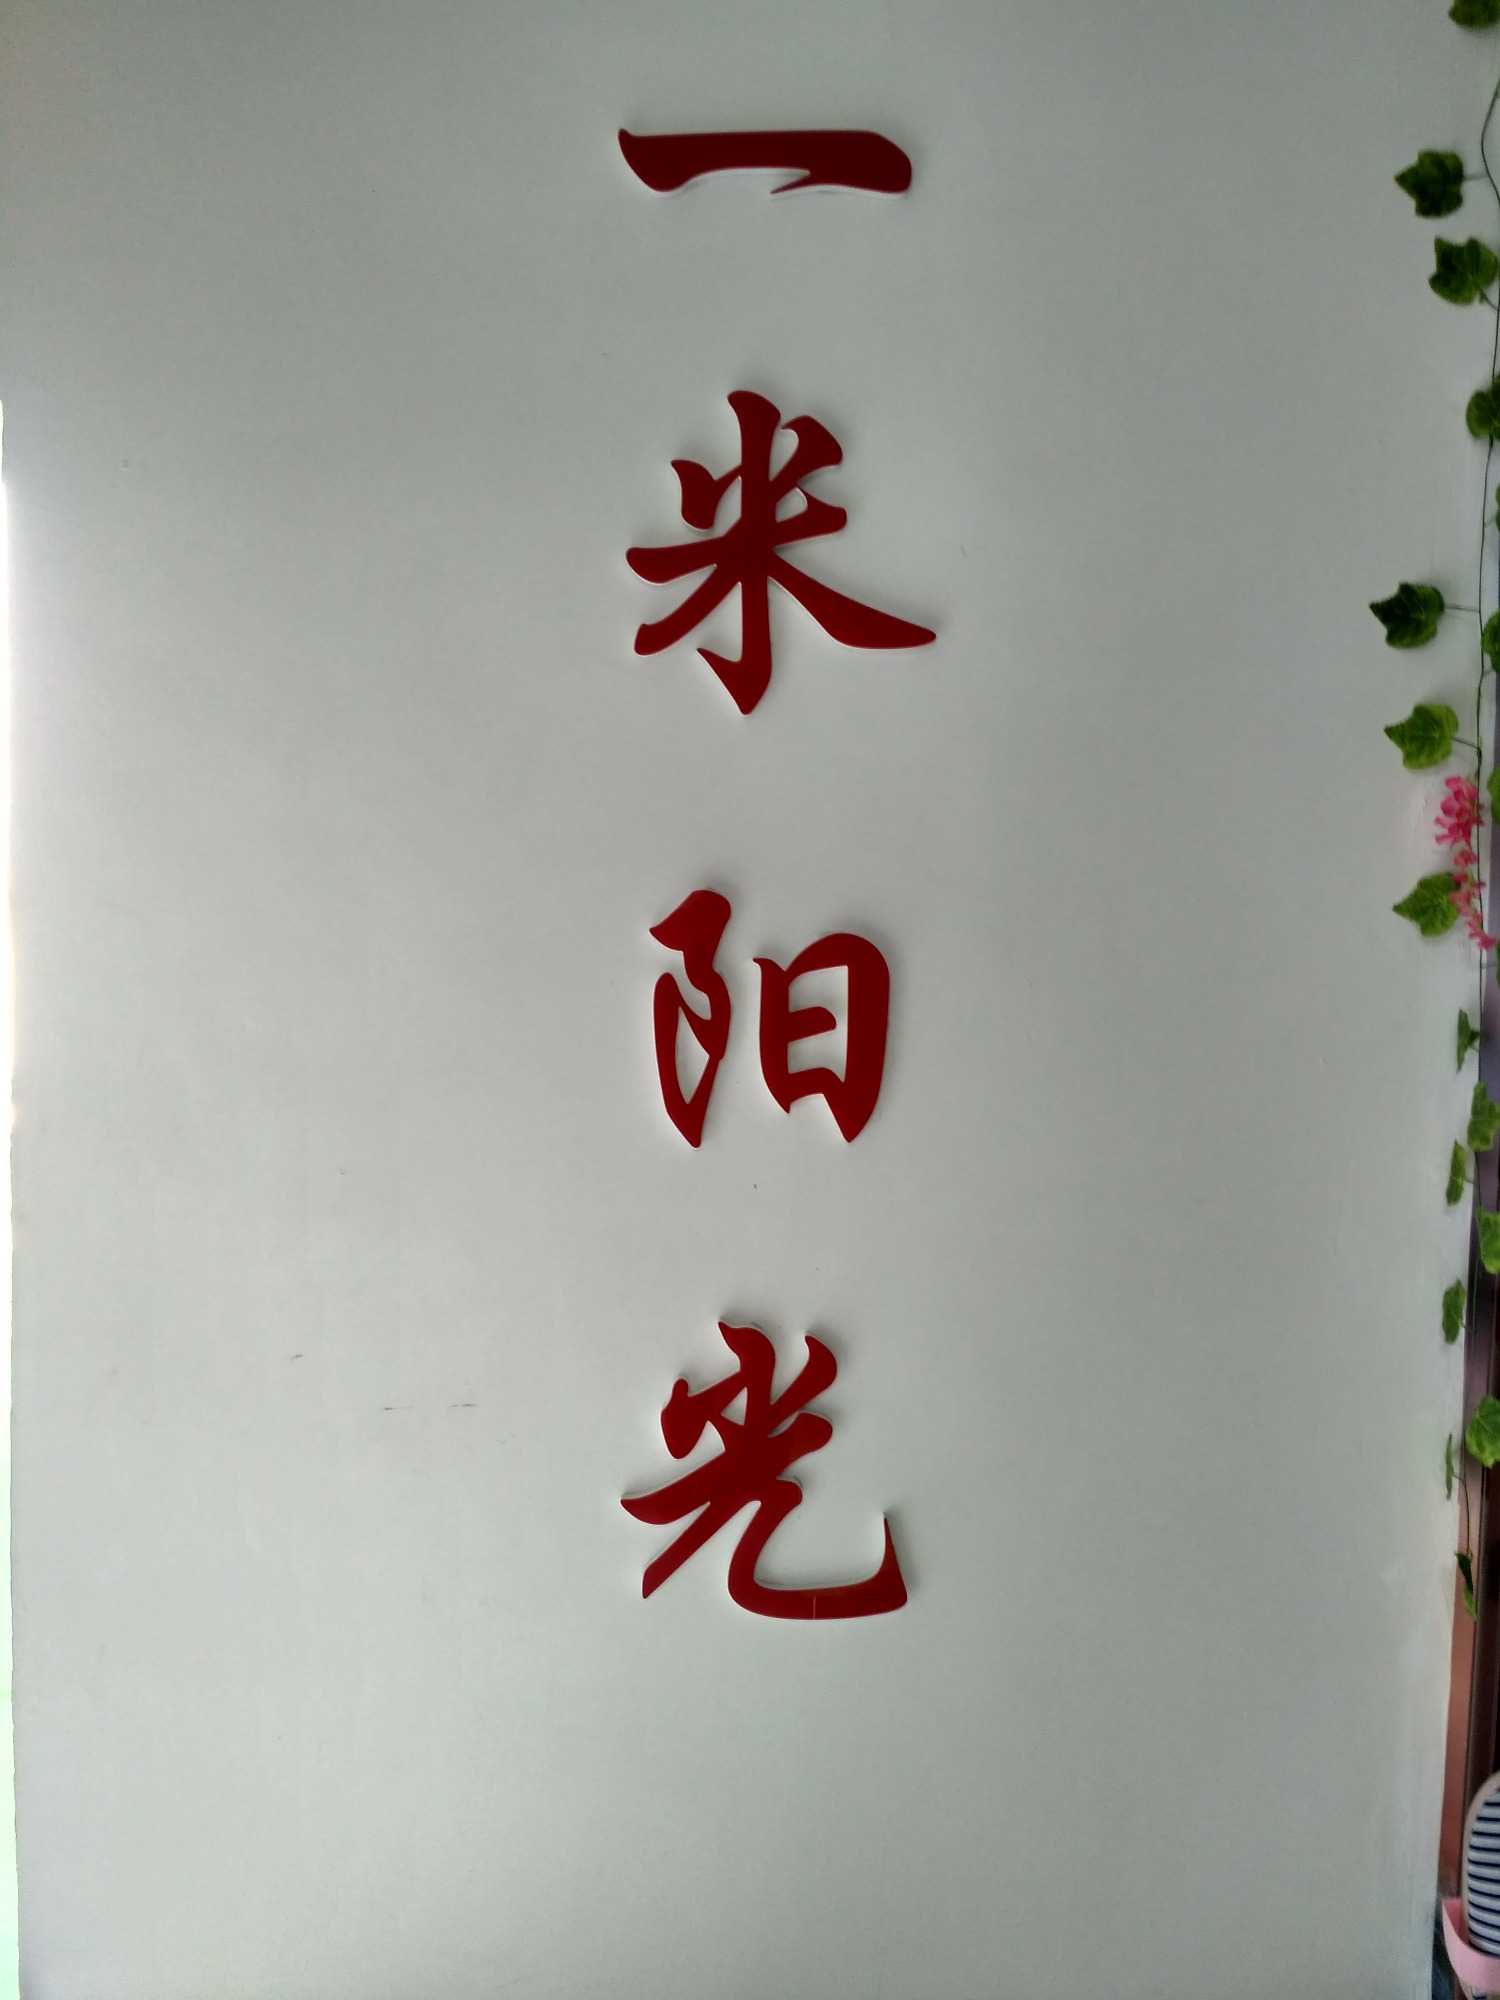 一米阳光